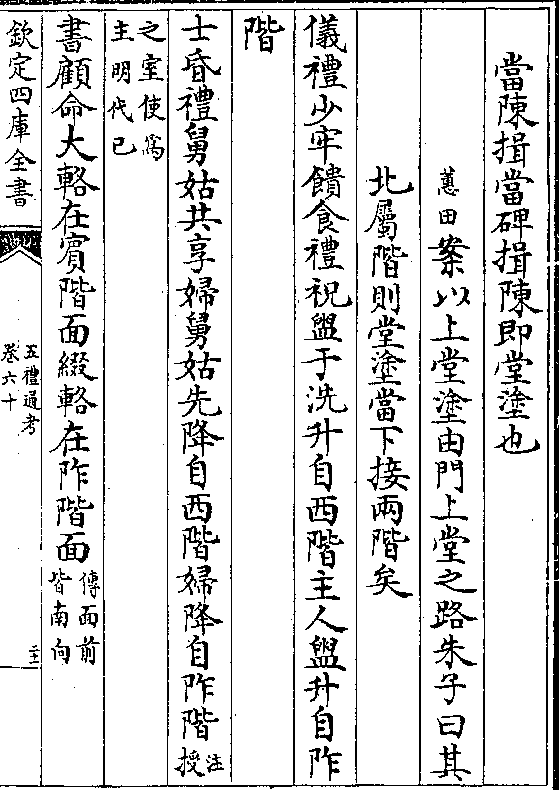 當陳揖當碑揖陳即堂塗也
蕙田案以上堂塗由門上堂之路朱子曰其
北屬階則堂塗當下接兩階矣
儀禮少牢饋食禮祝盥于洗升自西階主人盥升自阼
階
士昏禮舅姑共享婦舅姑先降自西階婦降自阼階注
授
之室使為
主明代已
書顧命大輅在賓階面綴輅在阼階面傳面前
皆南向
欽定四庫全書
五禮通考
卷六十
二十